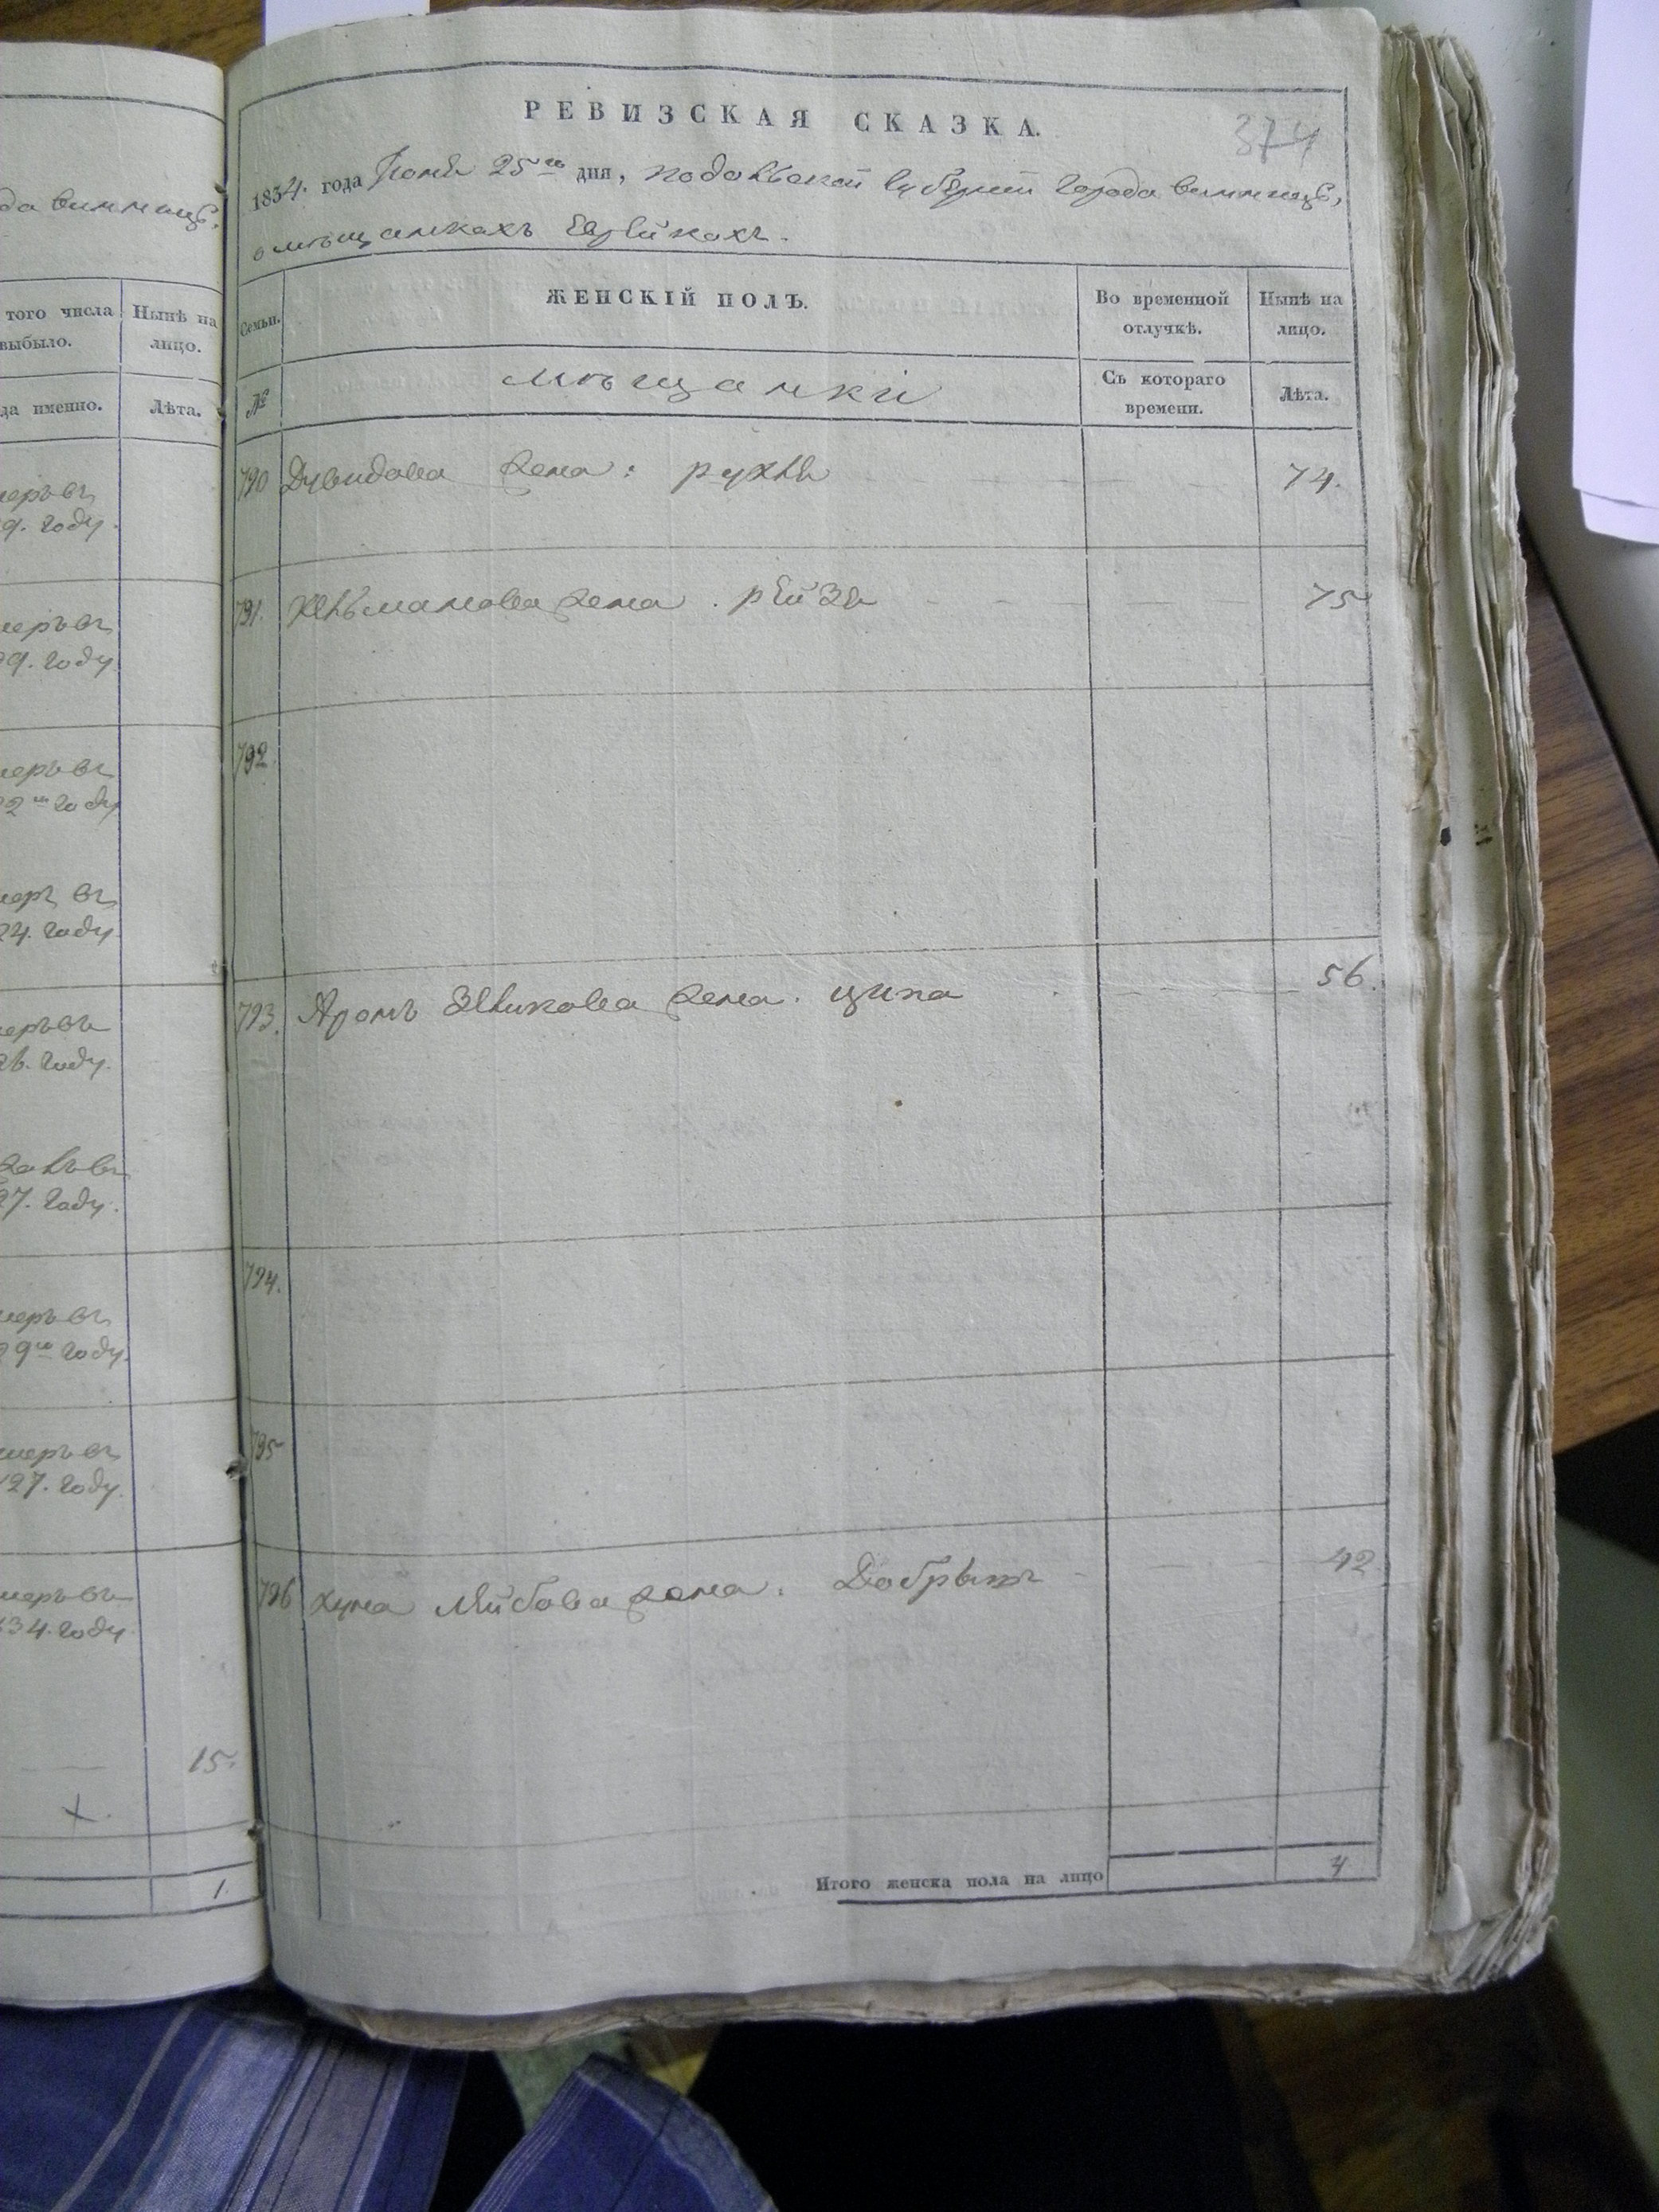 да винницѣ,
того числа
выбыло.
Нынѣ на
лицо.
да именно.
Лѣта.
меръ въ
9. году.
меръ въ
9. году
меръ въ
2го году
меръ въ
24. году
меръ въ
26. году.
въ
27. году.
меръ въ
9го году.
меръ въ
27. году.
меръ въ
34. году
15.
1.
РЕВИЗСКАЯ СКАЗКА.
374
1834. года 25го дня, подольской губерніи города винницѣ,
о мѣщанкахъ Еврейкахъ.
Семьи.
ЖЕНСКІЙ ПОЛЪ.
Во временной
отлучкѣ.
Нынѣ на
лицо.
№
мѣщанки
Съ котораго
времени.
Лѣта.
790 Дувидова жена: рухля 74.
791. жена. рейзя 75
792.
793. Аронъ Зейликова жена. ципа 56.
794.
795
796 хуна Лейбова жена. Добрышъ 42
Итого женска пола на лицо 4